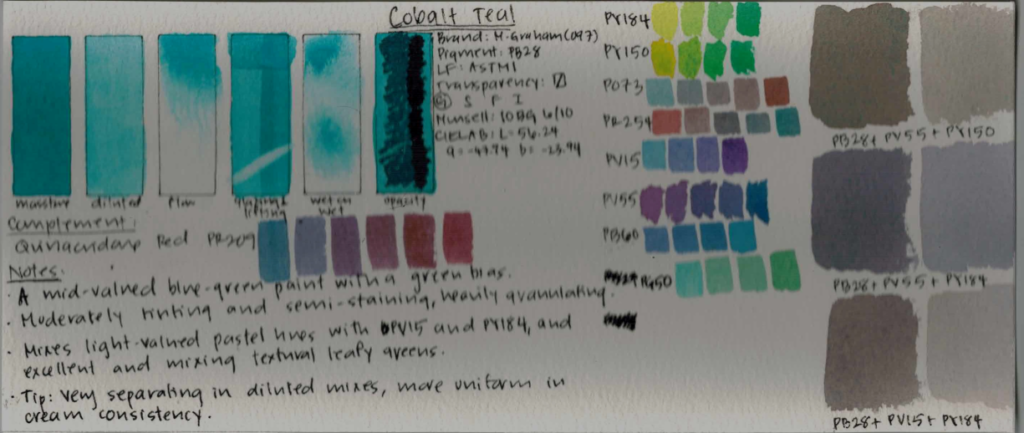 Cobalt Teal
Brand: M. Graham (097)
Pigment: PB28
LF: ASTM I
Transparency:
G S F I
Munsell: 10BG 6/10
CIELAB: L=56.24
a=-43.74 b=-23.94
masstone diluted flow glazing + lifting wet on wet opacity
Complement:
Quinacridone Red PR209
Notes:
· A mid-valued blue-green paint with a green bias.
· Moderately tinting and semi-staining, heavily granulating.
· Mixes light-valued pastel hues with PV15 and PY184, and
excellent and mixing textural leafy greens.
· Tip: Very separating in diluted mixes, more uniform in
cream consistency.
PY184
PY150
PO73
PR254
PV15
PV55
PB60
PG50
PB28+ PV55 + PY150
PB28+ PV55 + PY184
PB28+ PV15+ PY184